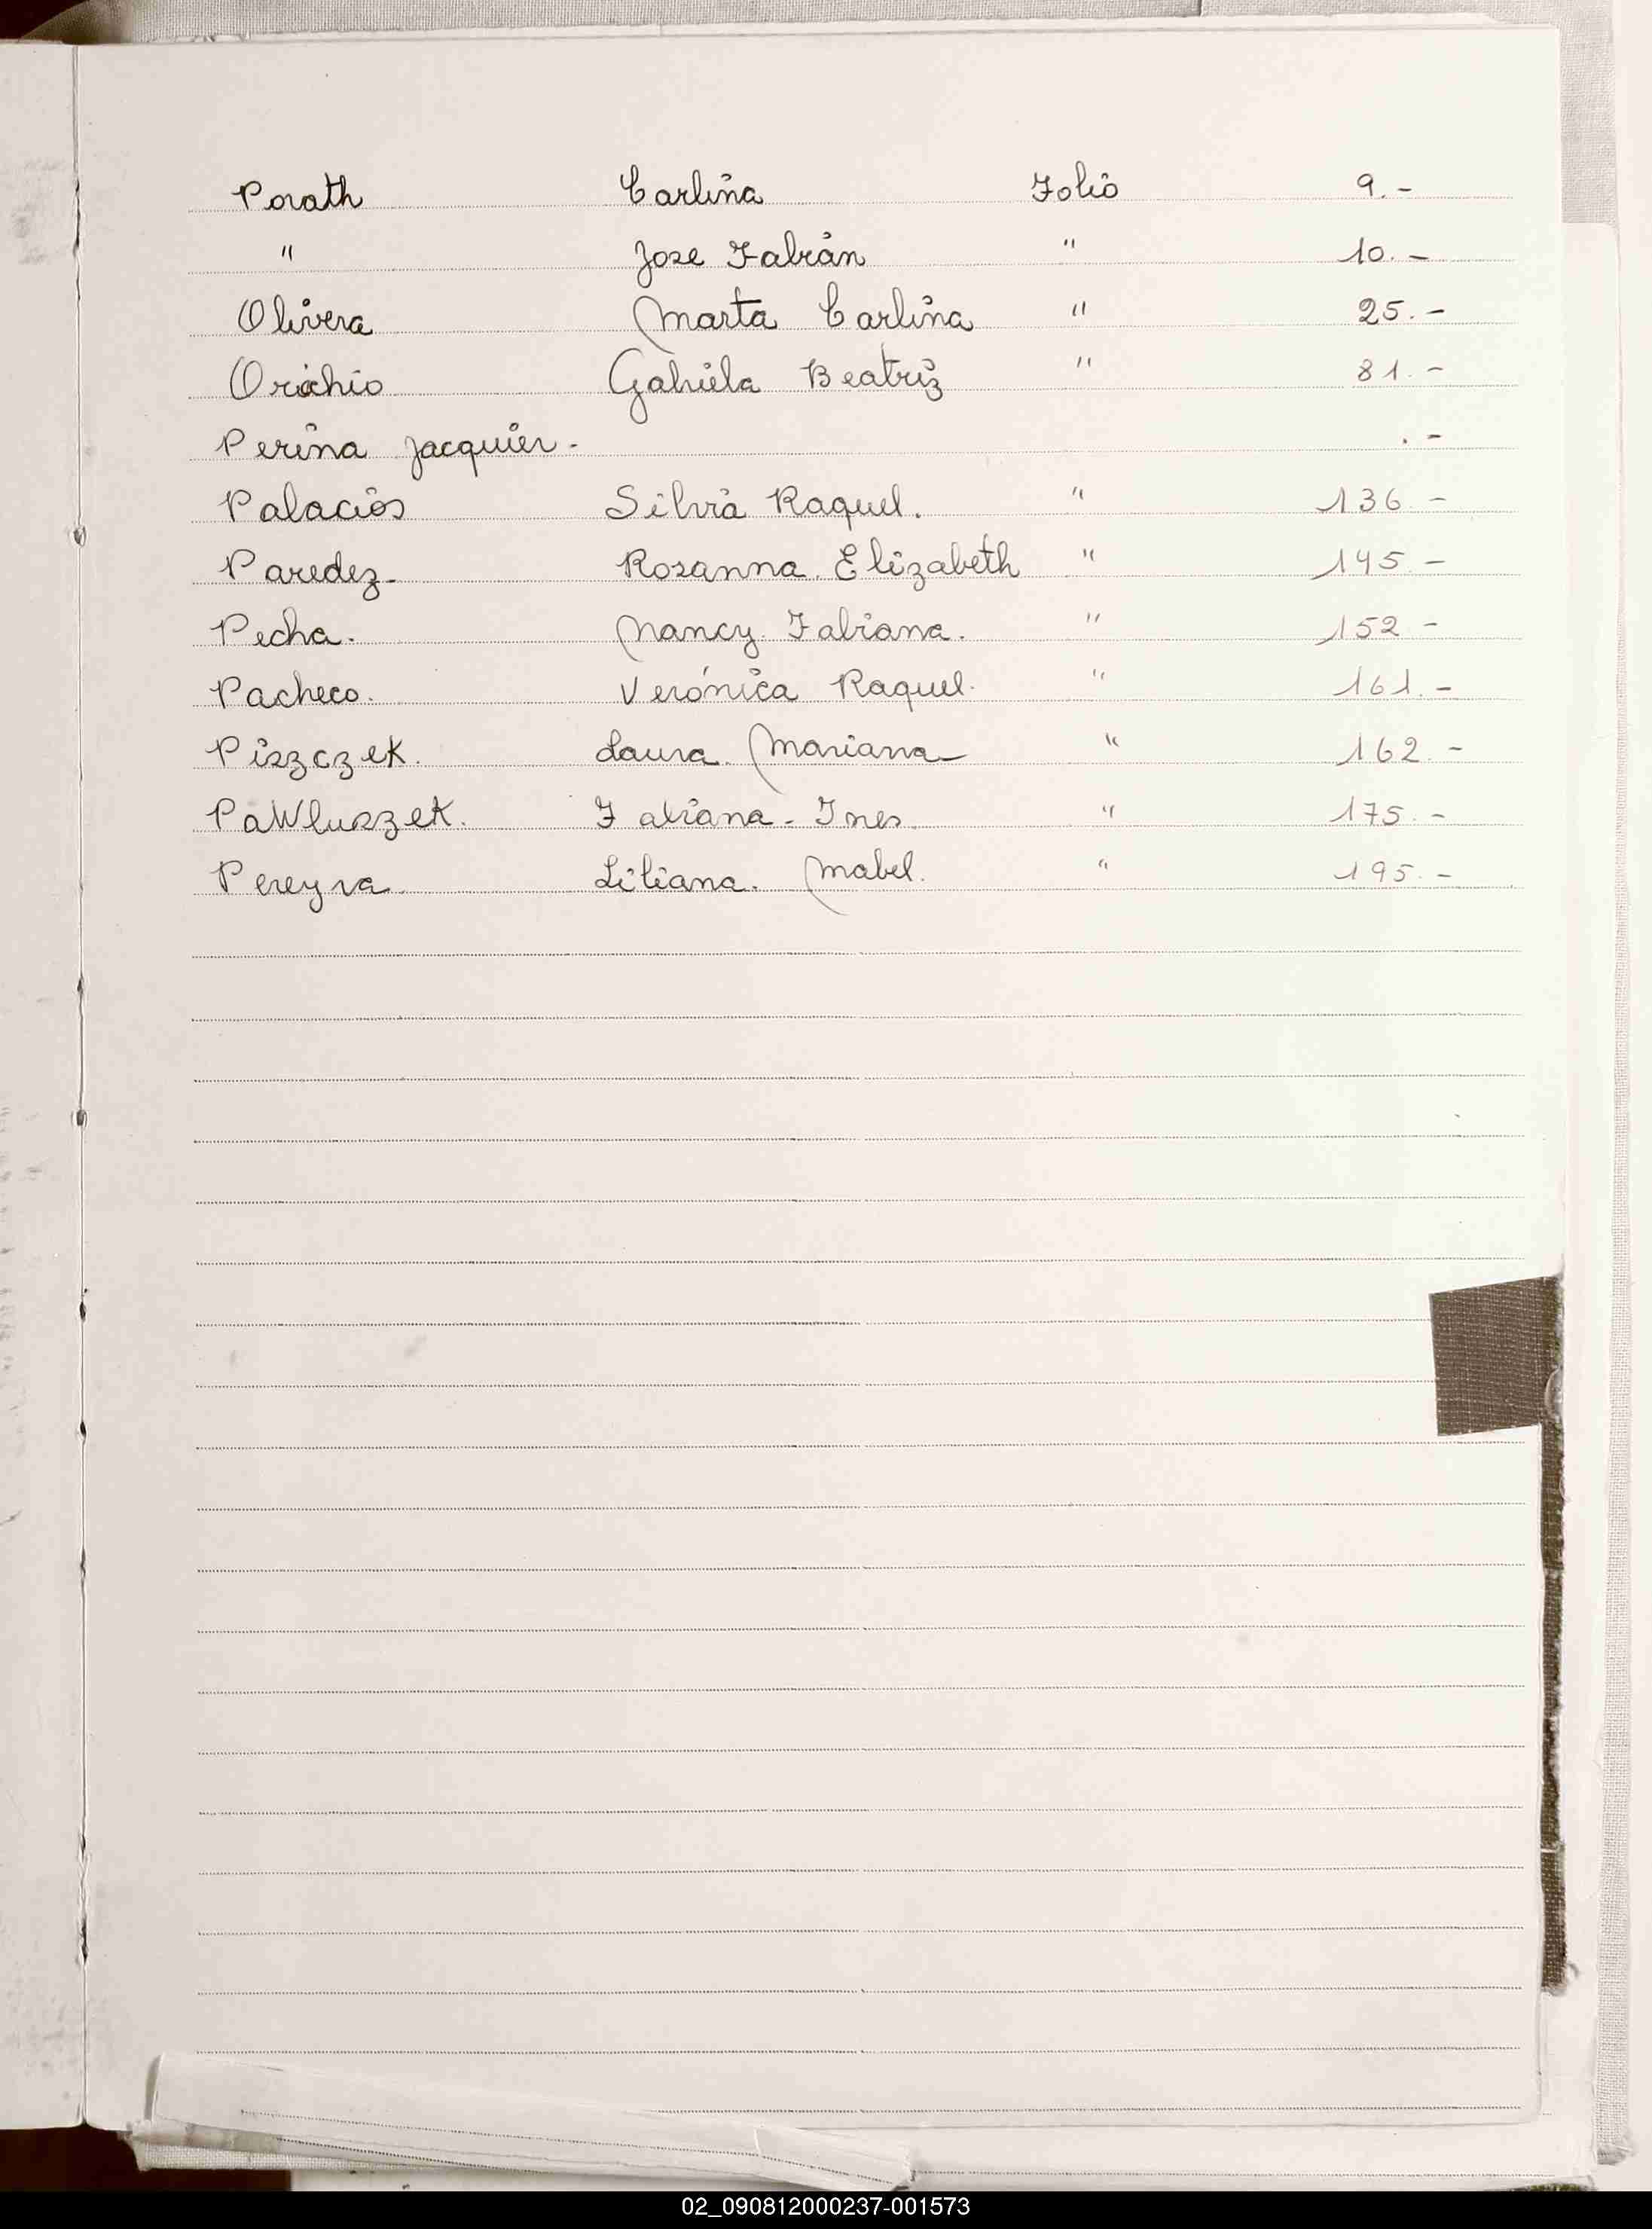 Porath Carlina Folio 9.-
" Jose Fabián " 10.-
Olivera Marta Carlina " 25.-
Orichio Gabriela Beatriz " 81.-
Perina Jacquier- .-
Palacios Silvia Raquel. " 136-
Paredez- Rosanna Elizabeth " 145.-
Pecha. Nancy Fabiana. " 152-
Pacheco. Verónica Raquel. " 161.-
Piszczek. Laura Mariana- " 162.-
PaWluszek. Fabiana- Ines " 175.-
Pereyra Liliana. Mabel. " 195.-
02_090812000237-001573